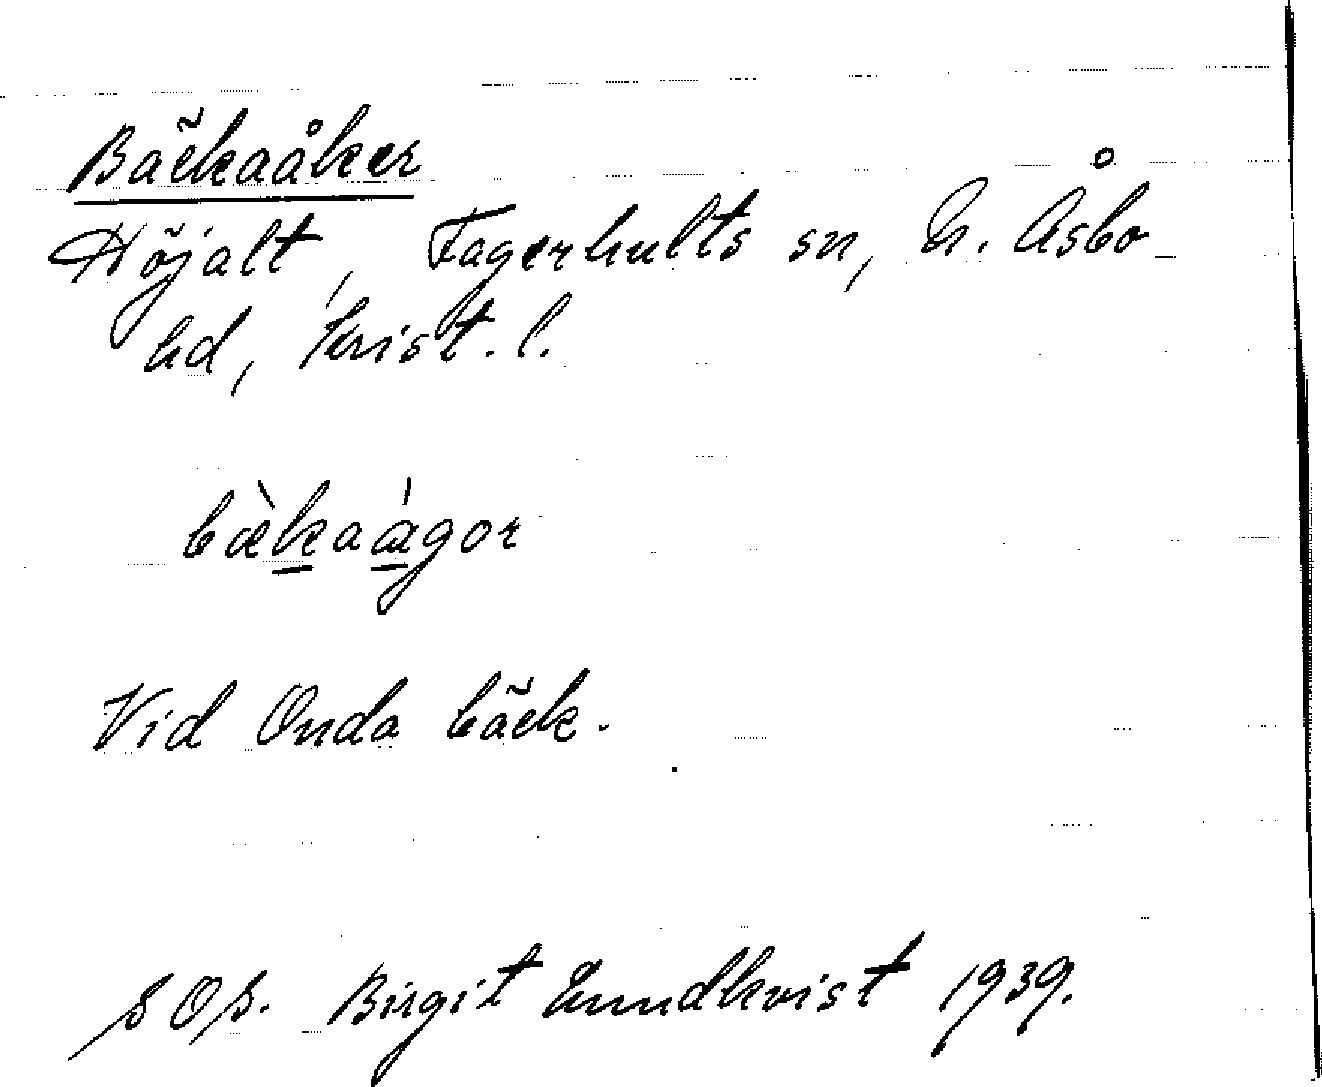 Bäckaåker
Höjalt, Fagerhults sn, N. Åsbo
hd, Krist. l.
bæ̀kaágor
Vid Onda bäck.
SOS. Birgit Lundkvist 1939.